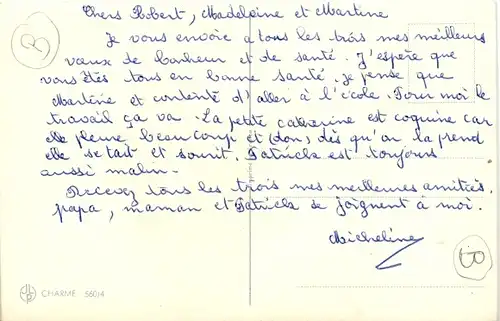 Chers Robert, Madeleine et Martine
Je vous envoie a tous les trois mes meilleurs
vœux de bonheur et de santé. J'espère que
vous êtes tous en bonne santé. je pense que
Martine et contente d'aller à l'école. Pour moi le
travail ça va. La petite catherine est coquine car
elle pleure beaucoup et (don) dès qu'on la prend
elle se tait et sourit. Patrick est toujours
aussi malin.
Recevez tous les trois mes meilleures amitiés.
papa, maman et Patrick se joignent à moi.
Micheline
B
B
CHARME 550/4